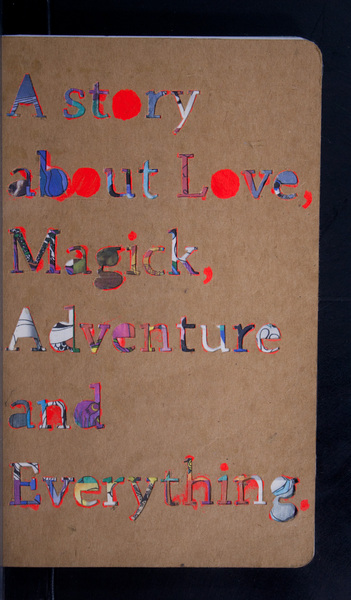 A story
about Love,
Magick,
Adventure
and
Everything.